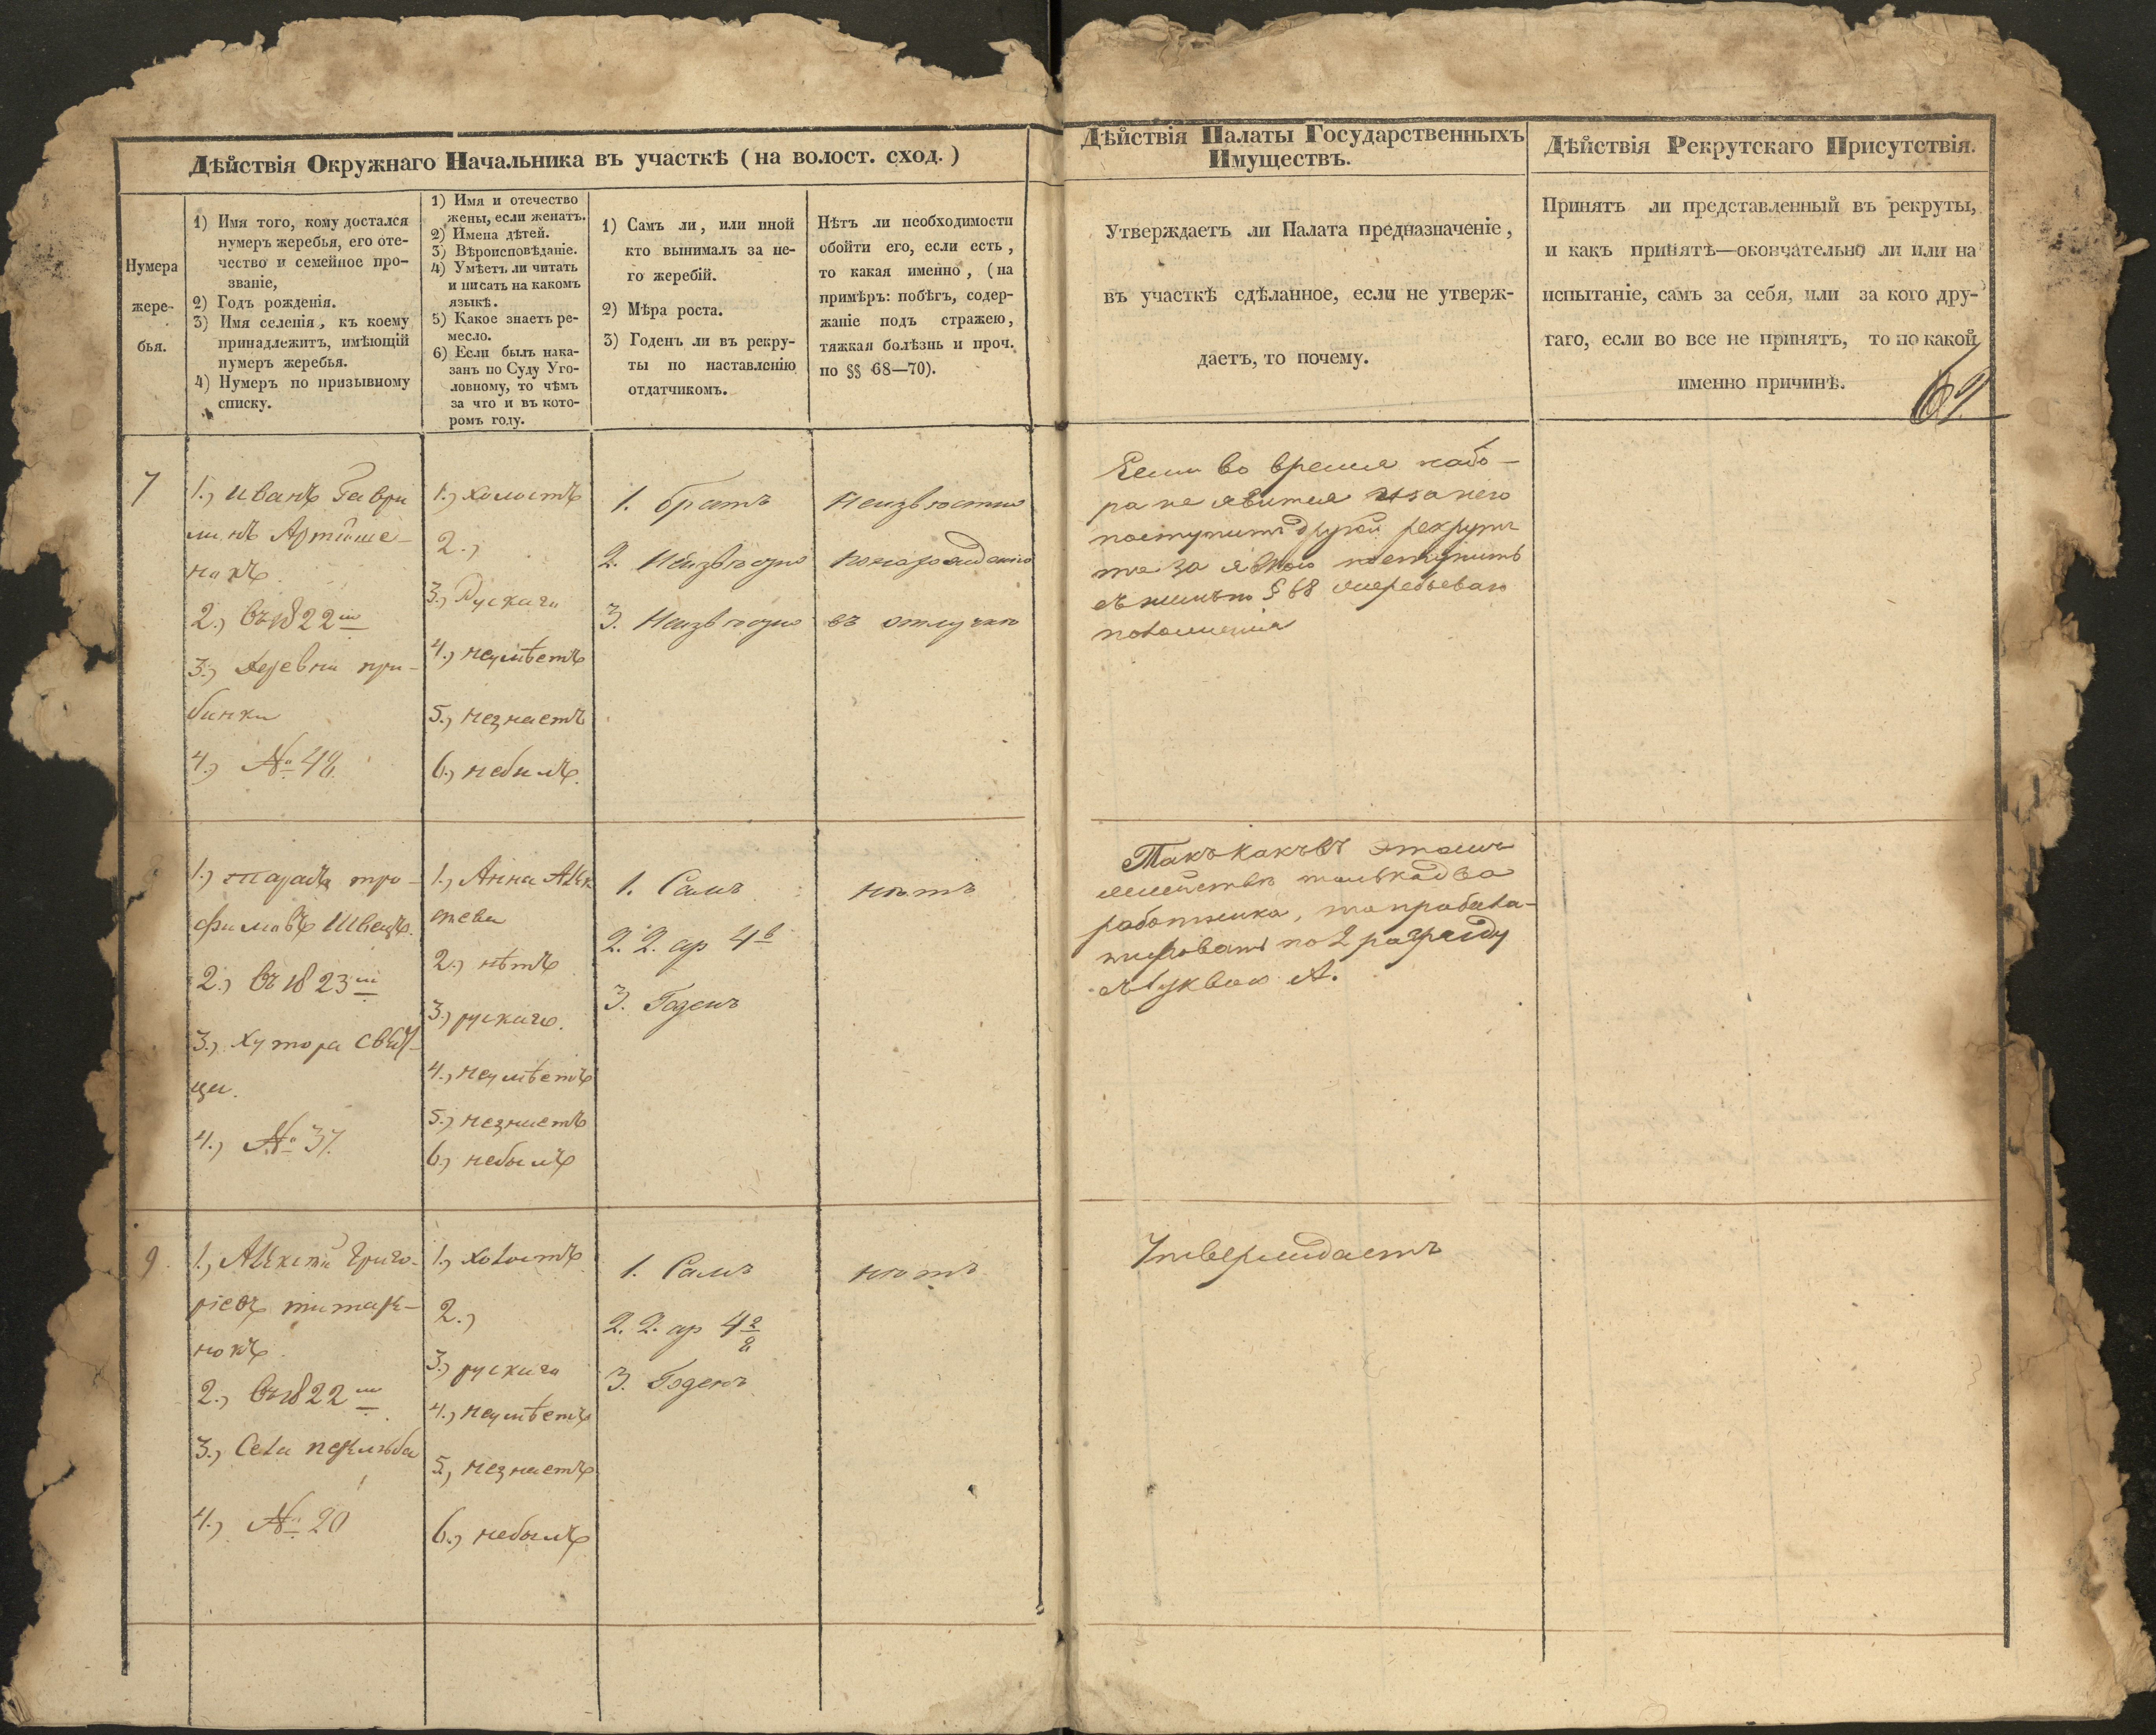 Дѣйствія Окружнаго Начальника въ участкѣ (на волост. сход.)
Нумера
жере-
бья.
1) Имя того, кому достался
нумеръ жеребья, его оте-
чество и семейное про-
званіе,
2) Годъ рожденія.
3) Имя селенія, къ коему
принадлежитъ, имѣющій
нумеръ жеребья.
4) Нумеръ по призывному
списку.
1) Имя и отечество
жены, если женатъ.
2) Имена дѣтей.
3) Вѣроисповѣданіе.
4) Умѣетъ ли читать
и писать на какомъ
языкѣ.
5) Какое знаетъ ре-
месло.
6) Если былъ нака-
занъ по Суду Уго-
ловному, то чѣмъ
за что и въ кото-
ромъ году.
1) Самъ ли, или иной
кто вынималъ за не-
го жеребій.
2) Мѣра роста.
3) Годенъ ли въ рекру-
ты по наставленію
отдатчикомъ.
Нѣтъ ли необходимости
обойти его, если есть,
то какая именно, (на
примѣръ: побѣгъ, содер-
жаніе подъ стражею,
тяжкая болѣзнь и проч.
по §§ 68—70).
7
1., Иванъ Гаври
линъ Артюше-
нокъ.
2., Въ 1822 м
3., Деревни
бинки
4., № 48.
1., холостъ
2.,
3., Рускаго
4., неумѣетъ
5., незнаетъ
6., небылъ.
1. братъ
2. Неизвѣстно
3. Неизвѣстно
Неизвѣстно
въ отлучкѣ
1., трo-
фимовъ Швецъ.
2., Въ 1823 м
3., Хутора
цы.
4., № 37.
1., Анна Алек
сѣева
2., нѣтъ
3., рускаго.
4., неумѣетъ
5., незнаетъ
6., небылъ
1. Самъ
2. 2. ар 4 в
3. Годенъ
нѣтъ
9.
1., Алексѣй Григо-
ріевъ титар-
нокъ.
2., Въ 1822 м
3., Села
4., № 20
1., Холостъ
2.,
3., рускаго
4., неумѣетъ
5., незнаетъ
6., небылъ
1. Самъ
2. 2. ар 4 2/8
3. Годенъ
нѣтъ
Дѣйствія Палаты Государственныхъ
Имуществъ.
Утверждаетъ ли Палата предназначеніе,
въ участкѣ сдѣланное, если не утверж-
даетъ, то почему.
Если во время набо-
ра не явится и за него
поступитъ другой рекрутъ
то за явкою поступить
съ нимъ по § 68
положенія
Такъ какъ въ этомъ
семействѣ только два
работника, то
по 2 разряду
А.
Утверждаетъ
Дѣйствія Рекрутскаго Присутствія.
Принятъ ли представленный въ рекруты,
и какъ принятъ—окончательно ли или на
испытаніе, самъ за себя, или за кого дру-
гаго, если во все не принятъ, то по какой
именно причинѣ.